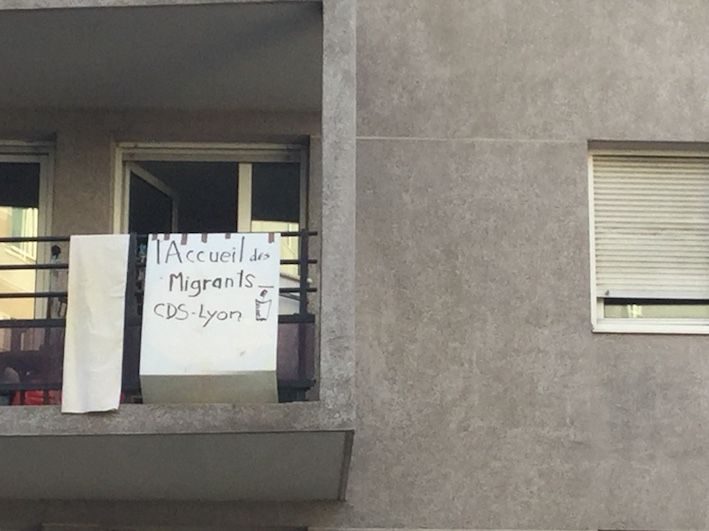 l'Accueil des
Migrants_
CDS-Lyon